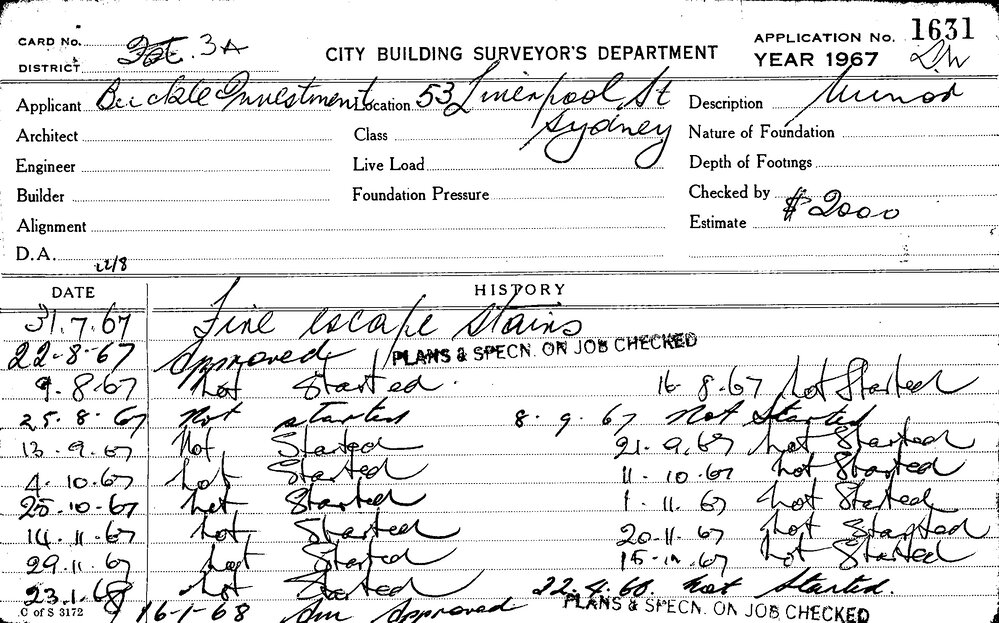 CARD No. 3A
DISTRICT
CITY BUILDING SURVEYOR'S DEPARTMENT
APPLICATION No. 1631
YEAR 1967
Applicant Buckle Investment Location 53 Liverpool St Sydney Description Minor
Architect Class Nature of Foundation
Engineer Live Load Depth of Footings
Builder Foundation Pressure Checked by
Alignment Estimate $2000
D.A.
22/8
DATE HISTORY
31.7.67 Fire escape Stairs
22-8-67 Approved PLANS & SPECN. ON JOB CHECKED
9.8.67 Not Started. 16.8.67 Not Started
25.8.67 Not started 8.9.67 Not Started
13.9.67 Not Started 21.9.67 Not Started
4.10.67 Not Started 11.10.67 Not Started
25.10.67 Not Started 1.11.67 Not Started
14.11.67 Not Started 20.11.67 Not Started
29.11.67 Not Started 15.12.67 Not Started
23.1.68 Not Started 22.4.68 Not Started.
C of S 3172 16-1-68 Approved PLANS & SPECN. ON JOB CHECKED